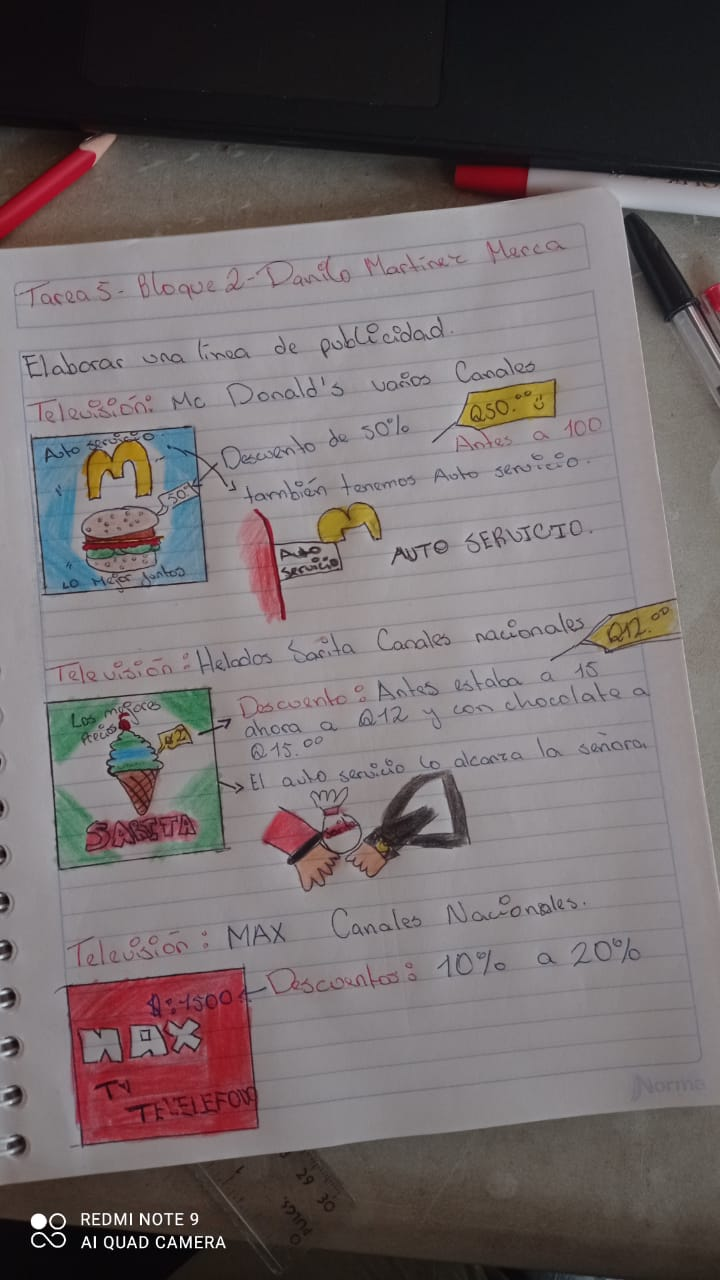 Tarea 5 - Bloque 2 - Danilo Martinez Merca
Elaborar una línea de publicidad.
Televisión: Mc Donald's varios Canales
Auto servicio
50%
Lo Mejor Juntos
Descuento de 50%
Q50.00
Antes a 100
también tenemos Auto servicio.
Auto
servicio
AUTO SERVICIO.
Televisión: Helados Sarita Canales nacionales
Q12.00
Los mejores
Precios
Q12
SARITA
Descuento: Antes estaba a 15
ahora a Q12 y con chocolate a
Q15.00
El auto servicio lo alcanza la señora.
Televisión: MAX Canales Nacionales.
Q:1500
MAX
TV
TELELEFONO
Descuentos: 10% a 20%
Norma
29 30
PULG.
REDMI NOTE 9
AI QUAD CAMERA